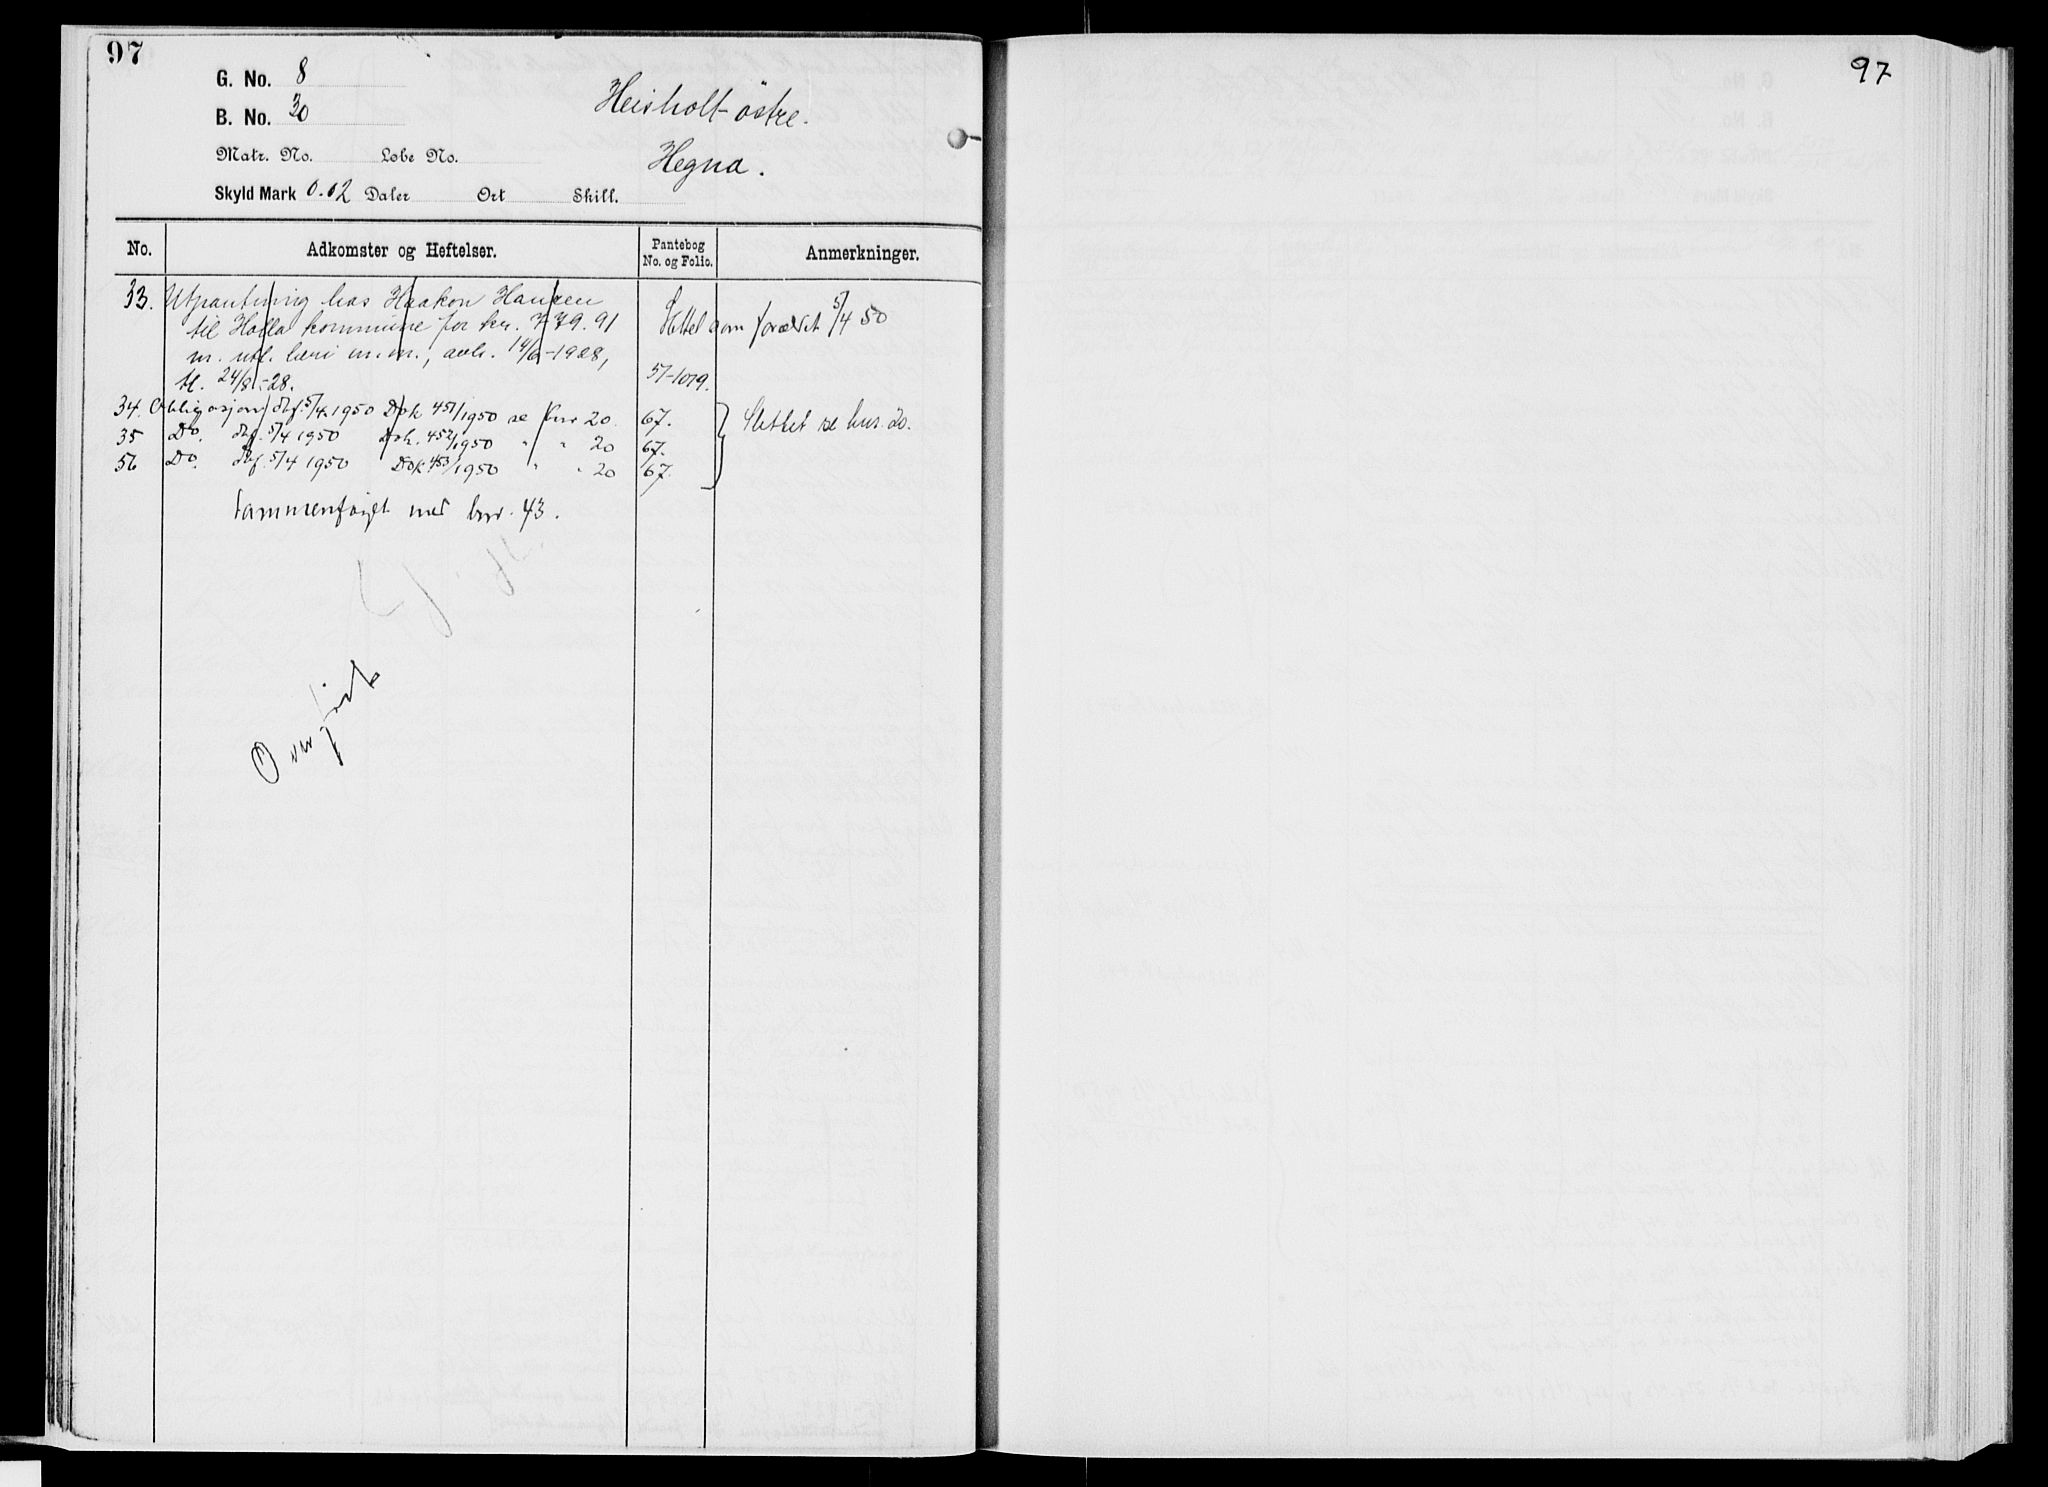 97
G. No. 8
B. No. 30
Heisholt østre.
Hegna.
Matr. No. Løbe No.
Skyld Mark 0.02 Daler Ort Skill.
No. Adkomster og Heftelser. Pantebog No. og Folio. Anmerkninger.
33. Utpantning hos Haakon Hansen
til Holla kommune for kr. 779.91 Slettet som foreldet 5/4 50
m. utl. m.m., avh. 14/6-1928,
tl. 24/8-28. 57-1079.
34. Obligasjon dgf. 5/4 1950 Dok 451/1950 se bnr 20. 67. Slettet se bnr. 20.
35 Do. dgf. 5/4 1950 Dok. 452/1950 " " 20 67.
56 Do. dgf. 5/4 1950 Dok 453/1950 " " 20 67.
Sammenføyet med bnr. 43.
Overført
97